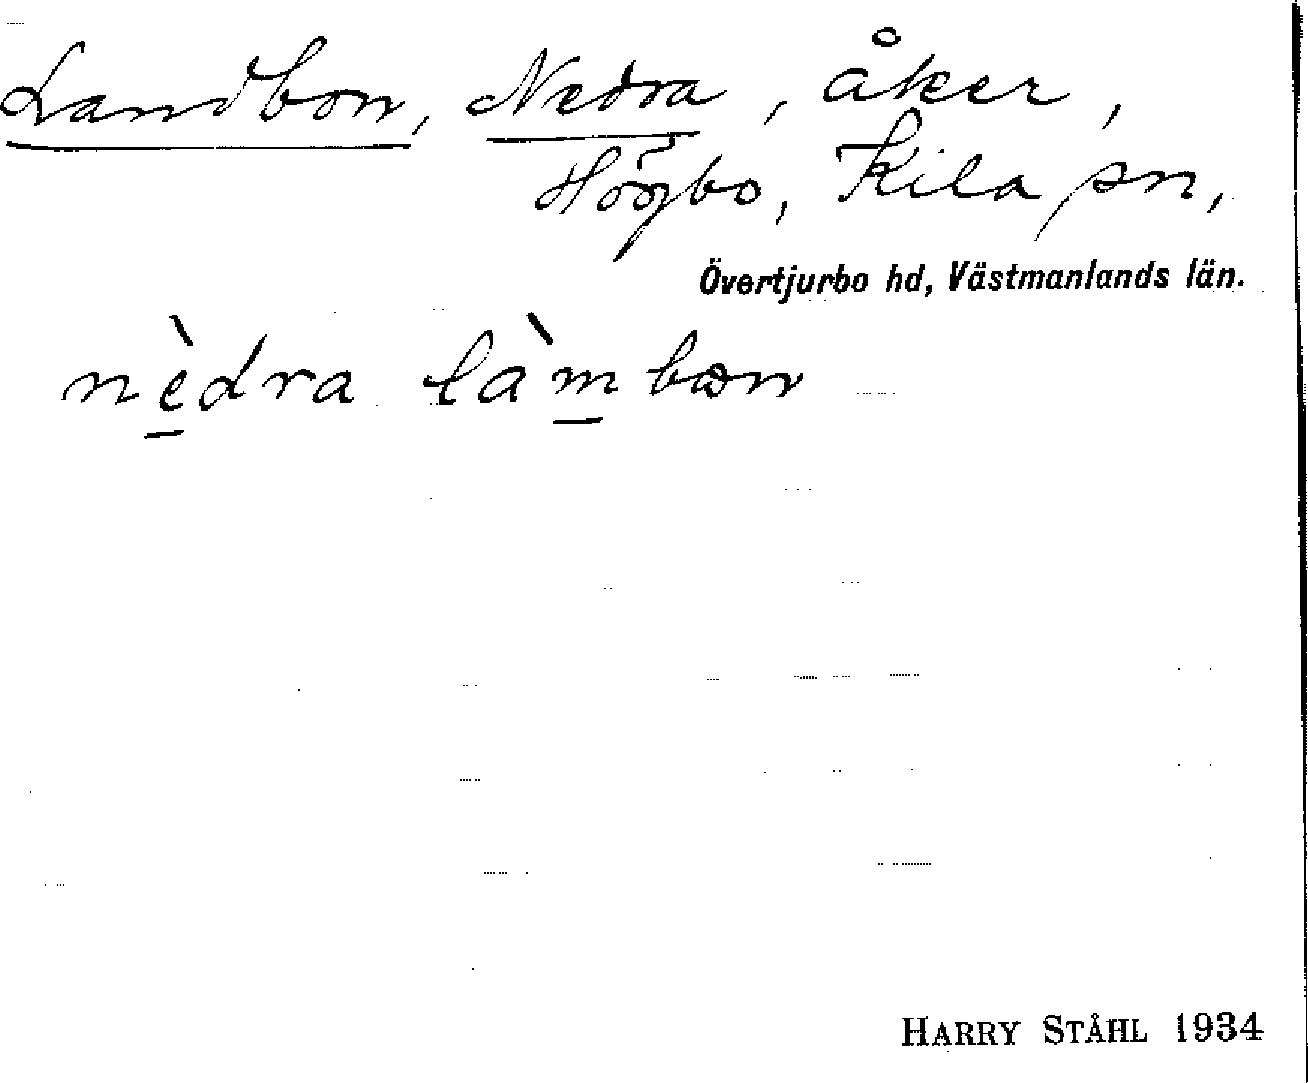 Landbon, Nedra, åker,
Högbo, Kila sn,
Övertjurbo hd, Västmanlands län.
nèdra làmbon
HARRY STÅHL 1934